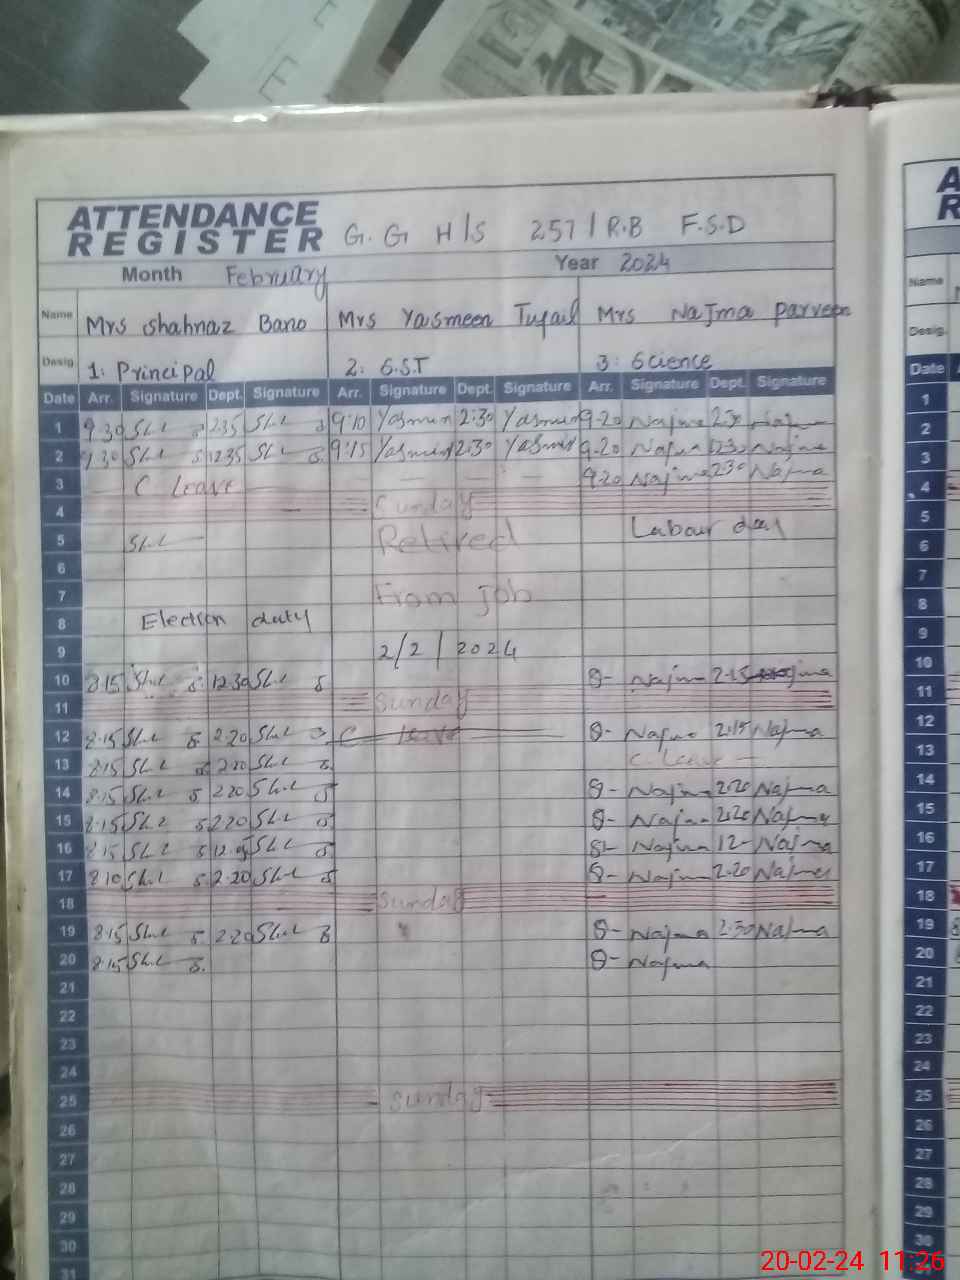 ATTENDANCE
REGISTER G.G H/S 257/R.B F.S.D
Month February Year 2024
Name Mrs Shahnaz Bano Mrs Yasmeen Tufail Mrs Najma Parveen
Desig. 1: Principal 2: S.S.T 3: Science
Date Arr. Signature Dept. Signature Arr. Signature Dept. Signature Arr. Signature Dept. Signature
1 9.30 9:10 Yasmin 2:30 Yasmin 9-20 Najma 2.30
2 9.30 12.35 9:15 Yasmin 2:30 Yasmin 9-20 Najma 2.30 Najma
3 C Leave 9.20 Najma 2.30 Najma
4 Sunday
5 Retired Labour day
6
7 From job
8 Election duty
9 2/2/2024
10 8.15 12.30 8- Najma 2-15
11 Sunday
12 8.15 2.20 C leave 8- Najma 2.15 Najma
13 8.15 C Leave
14 8.15 2.20 8- Najma 2.20 Najma
15 8.15 2.20 8- Najma 2.20 Najma
16 8.15 Najma 12- Najma
17 8.10 2.20 8- Najma 2.20 Najma
18 Sunday
19 8.15 2.20 8- Najma 2.30 Najma
20 8.15 8- Najma
21
22
23
24
25 Sunday
26
27
28
29
30
31
A
R
Name
Desig.
Date
1
2
3
4
5
6
7
8
9
10
11
12
13
14
15
16
17
18
19
20
21
22
23
24
25
26
27
28
29
30
20-02-24 11:26